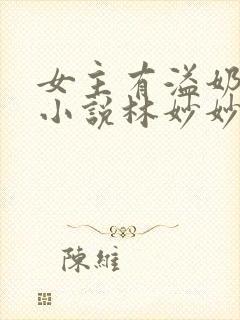 女主有溢奶
小說林妙妙
陳維